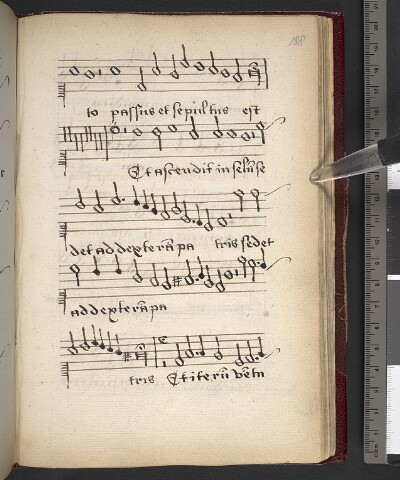 188
to passus et sepultus est
Et ascendit in celū se
det ad dexterā pa tris sedet
ad dexterā pa
tris Et iterū vētu